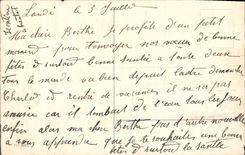 Lundi le 3 Juillet
Ma chère Berthe Je profite d'un petit
moment pour t'envoyer nos vœux de bonne
fête et surtout bonne santé à toute deux
tout le monde va bien depuis
Charles est rentré de vacances il ne es pas
car il tombait de l'eau tous les jours
enfin alors ma chère Berthe pas d'autre nouvelles
à vous apprendre que je te souhaite une bonne
fête et surtout la santé